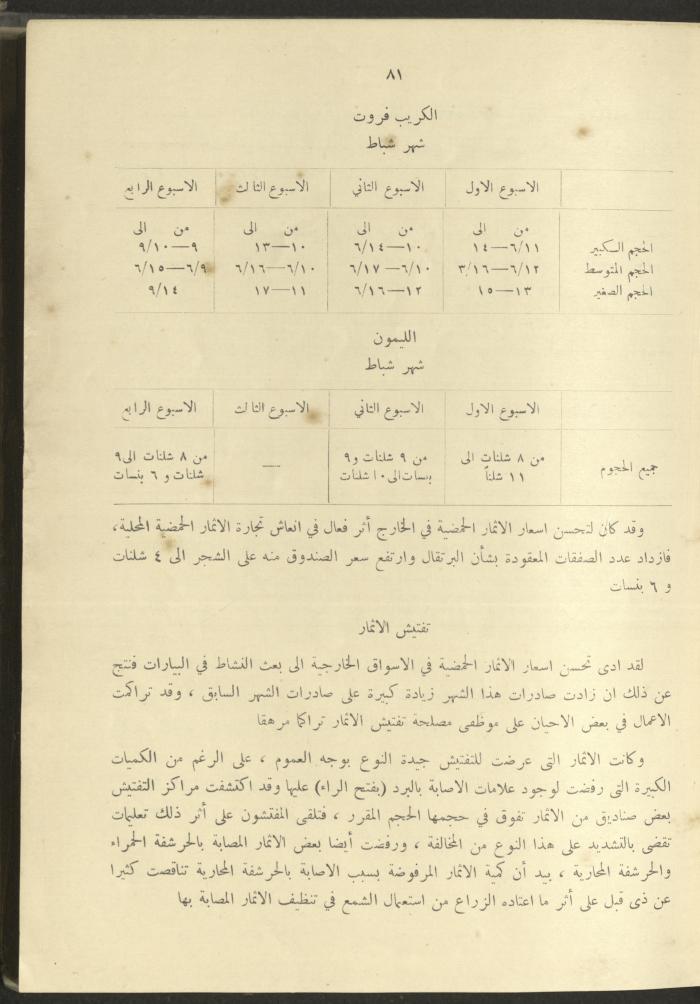 ٨١
الكريب فروت
شهر شباط
الاسبوع الاول الاسبوع الثاني الاسبوع الثالث الاسبوع الرابع
من الى من الى من الى من الى
الحجم الكبير ٦/١١—١٤ ١٠—٦/١٤ ١٠—١٣ ٩—٩/١٠
الحجم المتوسط ٦/١٢—٣/١٦ ٦/١٠—٦/١٧ ٦/١٠—٦/١٦ ٦/٩—٦/١٥
الحجم الصغير ١٣—١٥ ١٢—٦/١٦ ١١—١٧ ٩/١٤
الليمون
شهر شباط
الاسبوع الاول الاسبوع الثاني الاسبوع الثالث الاسبوع الرابع
من ٨ شلنات الى من ٩ شلنات و ٩ من ٨ شلنات الى ٩
جميع الحجوم — 
١١ شلناً بنسات الى ١٠ شلنات شلنات و ٦ بنسات
وقد كان لتحسن اسعار الاثمار الحمضية في الخارج أثر فعال في انعاش تجارة الاثمار الحمضية المحلية،
فازداد عدد الصفقات المعقودة بشأن البرتقال وارتفع سعر الصندوق منه على الشجر الى ٤ شلنات
و ٦ بنسات
تفتيش الاثمار
لقد ادى تحسن اسعار الاثمار الحمضية في الاسواق الخارجية الى بعث النشاط في البيارات فنتج
عن ذلك ان زادت صادرات هذا الشهر زيادة كبيرة على صادرات الشهر السابق ، وقد تراكمت
الاعمال في بعض الاحيان على موظفى مصلحة تفتيش الاثمار تراكا مرهقا
وكانت الاثمار التى عرضت للتفتيش جيدة النوع بوجه العموم ، على الرغم من الكميات
الكبيرة التى رفضت لوجود علامات الاصابة بالبرد (بفتح الراء) عليها وقد اكتشفت مراكز التفتيش
بعض صناديق من الاثمار تفوق في حجمها الحجم المقرر ، فتلقى المفتشون على أثر ذلك تعليمات
تقضى بالتشديد على هذا النوع من المخالفة ، ورفضت أيضا بعض الاثمار المصابة بالحرشفة الحمراء
والحرشفة المحارية ، بيد أن كمية الاثمار المرفوضة بسبب الاصابة بالحرشفة المحارية تناقصت كثيرا
عن ذى قبل على أثر ما اعتاده الزراع من استعمال الشمع في تنظيف الاثمار المصابة بها